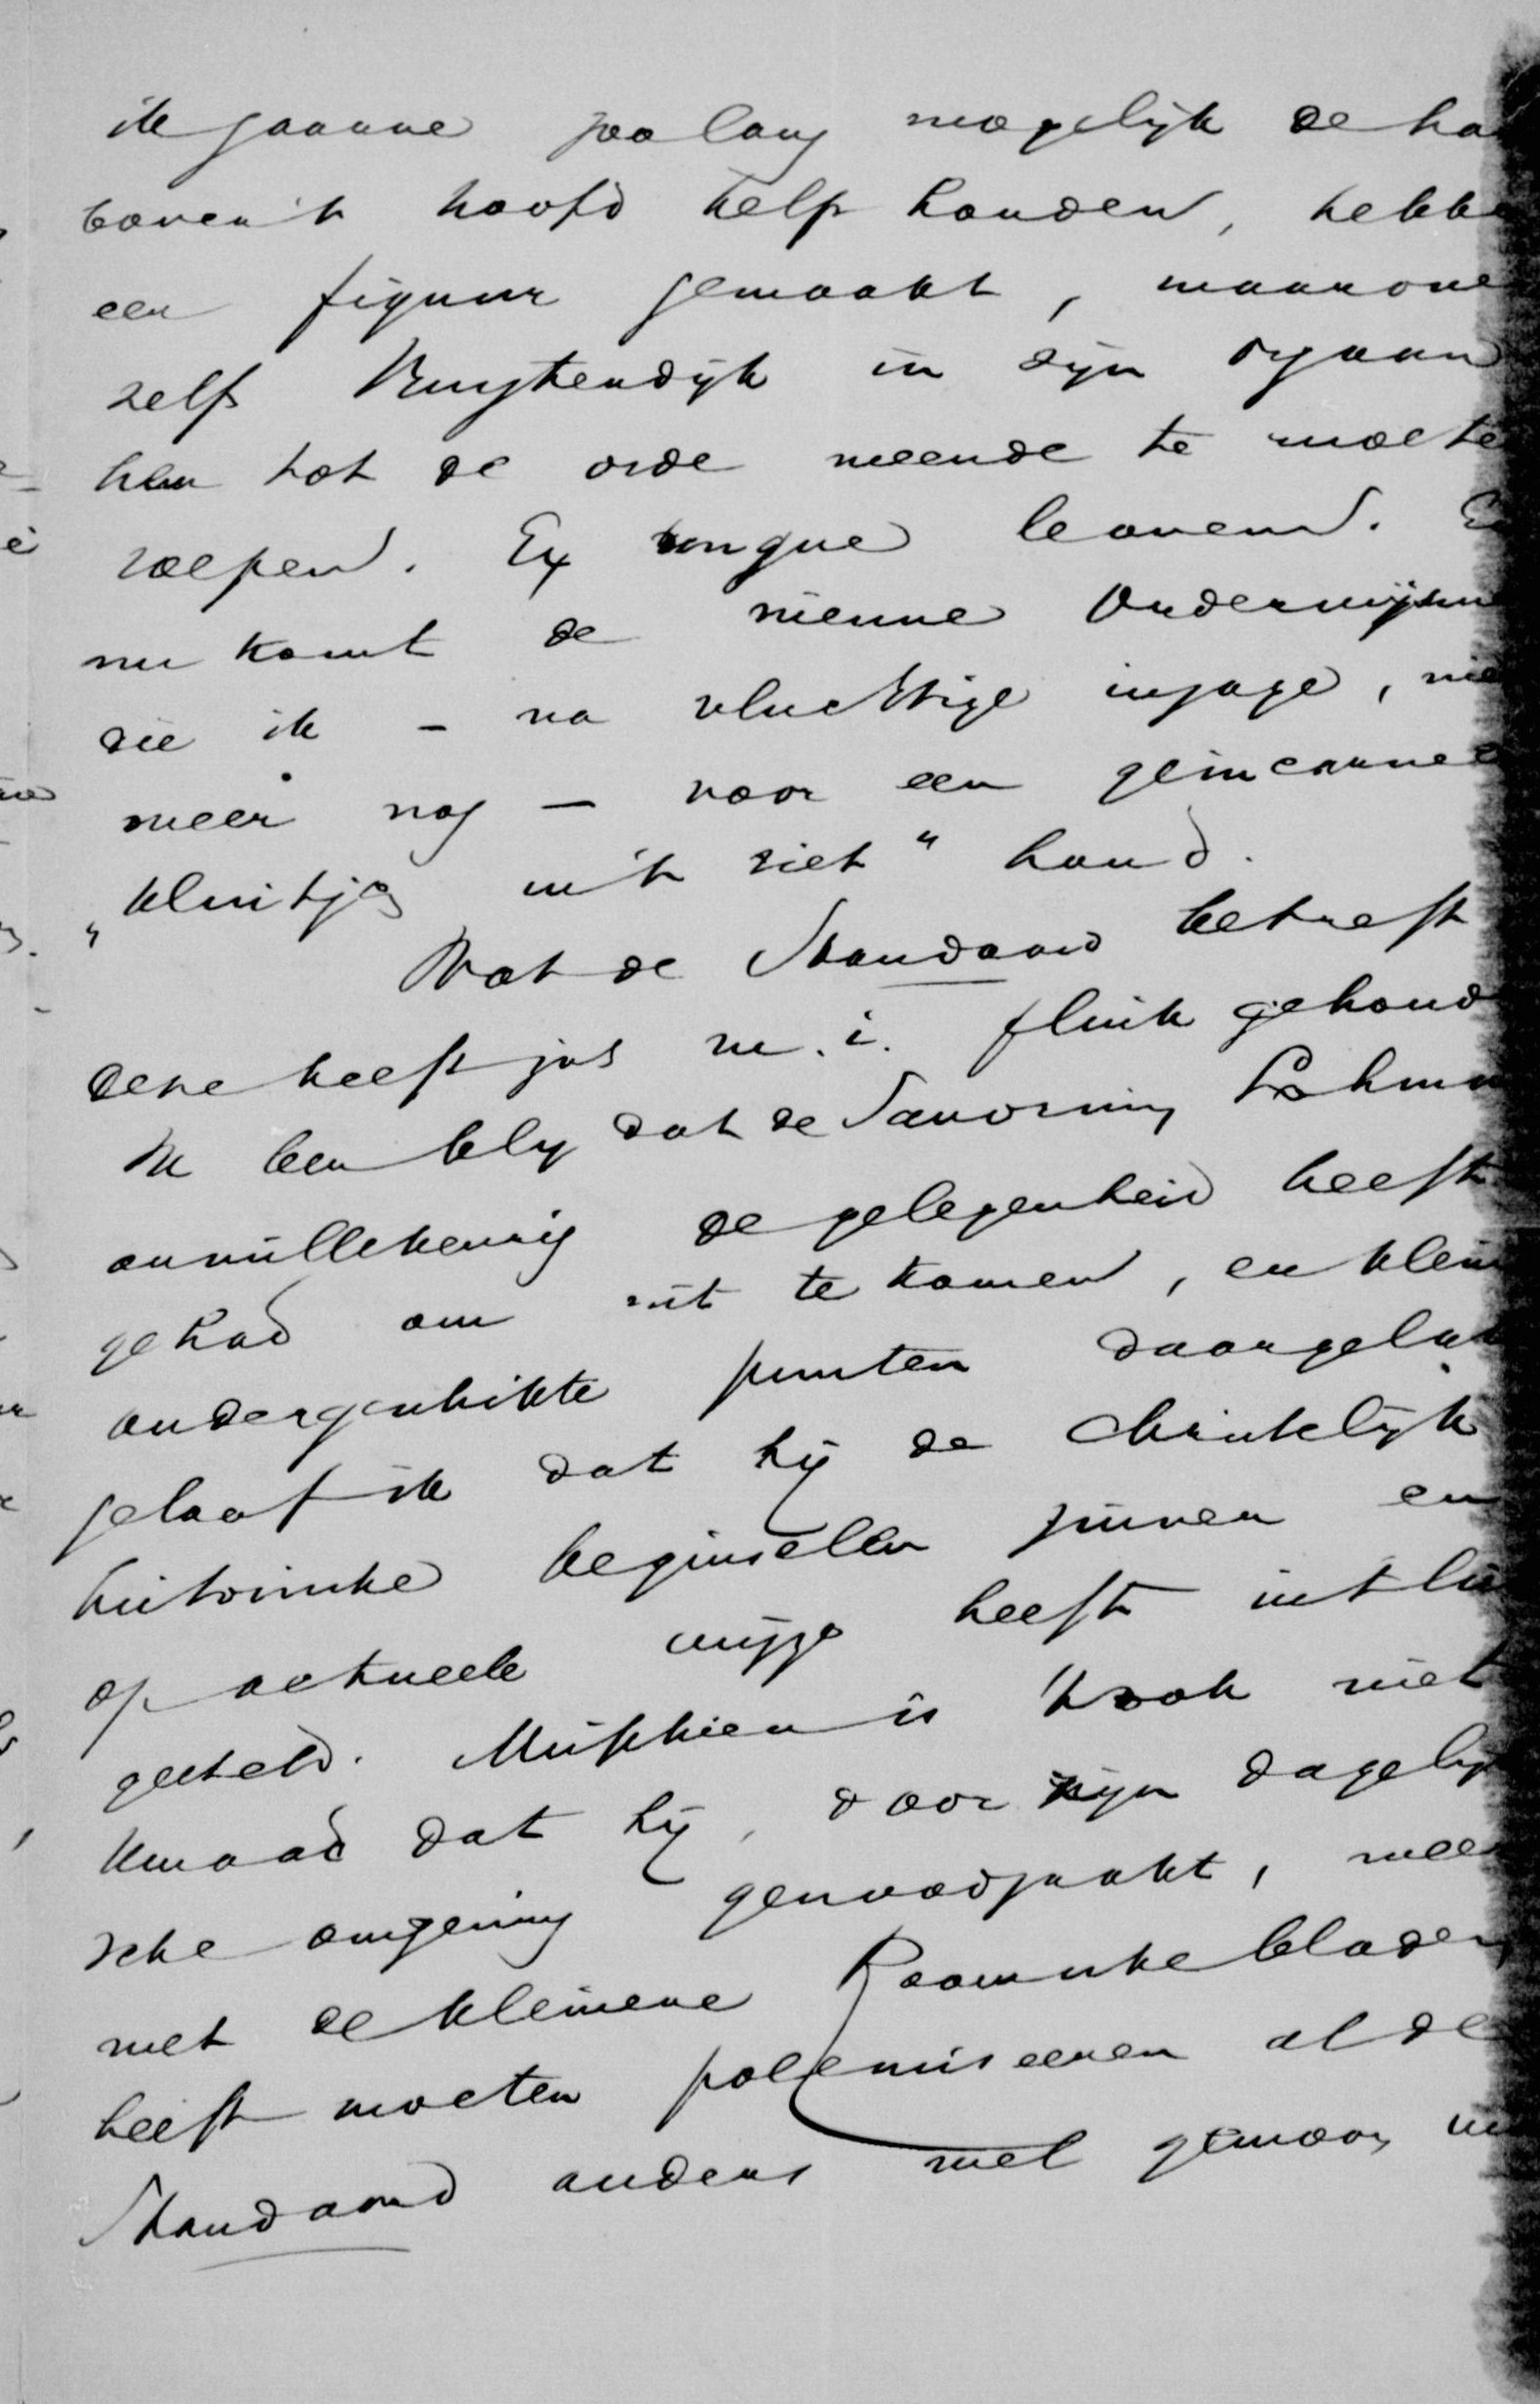 ik gaarne zoo lang mogelijk de ha
boven 't hoofd help houden, hebbe
een figuur gemaakt, waarove
zelfs Bruytendijk in zijn orgaan
hen tot de orde meende te moete
roepen. Ex ungue leonem. E
nu komt de nieuwe
zie ik – na vluchtige inzage, nie
meer nog – voor een geincarnee
"kluitje in 't riet" houd.
Wat de Standaard betreft
deze heeft zich m. i. flink gehoud
Ik ben blij dat de Savornin Lohma
onwillekeurig de gelegenheid heeft
gehad om uit te komen, en klein
ondergeschikte punten daargelat
geloof ik dat hij de Christelijk
historische beginselen zuiver en
op actueele wijze heeft uit
gezet. Misschien is 't ook niet
kwaad dat hij, door zijn dagelij
sche omgeving genoodzaakt, meer
met de kleinere Roomsche bladen
heeft moeten polemiseeren al de
Standaard anders wel gewoon